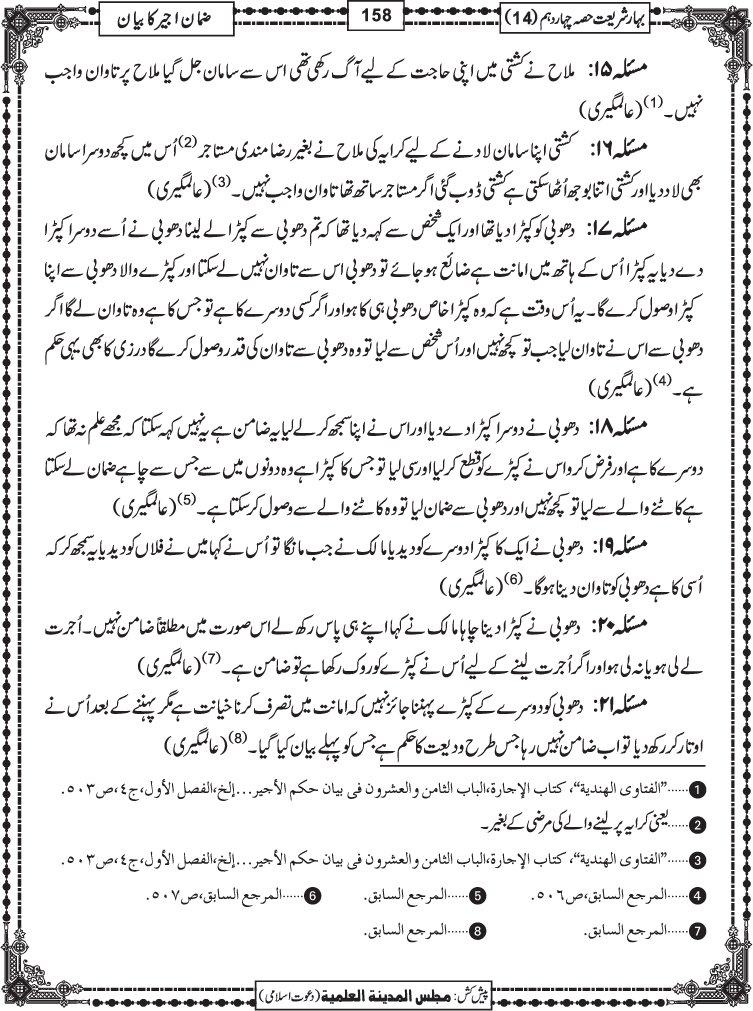 بہار شریعت حصہ چہاردہم (14)
158
ضمان اجیر کا بیان
مسئلہ ۱۵: ملاح نے کشتی میں اپنی حاجت کے لیے آگ رکھی تھی اس سے سامان جل گیا ملاح پر تاوان واجب
نہیں۔(1) (عالمگیری)
مسئلہ ۱۶: کشتی اپنا سامان لادنے کے لیے کرایہ کی ملاح نے بغیر رضامندی مستاجر(2) اُس میں کچھ دوسرا سامان
بھی لاد دیا اور کشتی اتنا بوجھ اُٹھا سکتی ہے کشتی ڈوب گئی اگر مستاجر ساتھ تھا تاوان واجب نہیں۔(3) (عالمگیری)
مسئلہ ۱۷: دھوبی کو کپڑا دیا تھا اور ایک شخص سے کہہ دیا تھا کہ تم دھوبی سے کپڑا لے لینا دھوبی نے اُسے دوسرا کپڑا
دے دیا یہ کپڑا اُس کے ہاتھ میں امانت ہے ضائع ہو جائے تو دھوبی اس سے تاوان نہیں لے سکتا اور کپڑے والا دھوبی سے اپنا
کپڑا وصول کرے گا۔ یہ اُس وقت ہے کہ وہ کپڑا خاص دھوبی ہی کا ہو اور اگر کسی دوسرے کا ہے تو جس کا ہے وہ تاوان لے گا اگر
دھوبی سے اس نے تاوان لیا جب تو کچھ نہیں اور اُس شخص سے لیا تو وہ دھوبی سے تاوان کی قدر وصول کرے گا درزی کا بھی یہی حکم
ہے۔(4) (عالمگیری)
مسئلہ ۱۸: دھوبی نے دوسرا کپڑا دے دیا اور اس نے اپنا سمجھ کر لے لیا یہ ضامن ہے یہ نہیں کہہ سکتا کہ مجھے علم نہ تھا کہ
دوسرے کا ہے اور فرض کرو اس نے کپڑے کو قطع کر لیا اور سی لیا تو جس کا کپڑا ہے وہ دونوں میں سے جس سے چاہے ضمان لے سکتا
ہے کاٹنے والے سے لیا تو کچھ نہیں اور دھوبی سے ضمان لیا تو وہ کاٹنے والے سے وصول کر سکتا ہے۔(5) (عالمگیری)
مسئلہ ۱۹: دھوبی نے ایک کا کپڑا دوسرے کو دیدیا مالک نے جب مانگا تو اُس نے کہا میں نے فلاں کو دیدیا یہ سمجھ کر کہ
اُسی کا ہے دھوبی کو تاوان دینا ہوگا۔(6) (عالمگیری)
مسئلہ ۲۰: دھوبی نے کپڑا دینا چاہا مالک نے کہا اپنے ہی پاس رکھ لے اس صورت میں مطلقاً ضامن نہیں۔ اُجرت
لے لی ہو یا نہ لی ہو اور اگر اُجرت لینے کے لیے اُس نے کپڑے کو روک رکھا ہے تو ضامن ہے۔(7) (عالمگیری)
مسئلہ ۲۱: دھوبی کو دوسرے کے کپڑے پہننا جائز نہیں کہ امانت میں تصرف کرنا خیانت ہے مگر پہننے کے بعد اُس نے
اوتار کر رکھ دیا تو اب ضامن نہیں رہا جس طرح ودیعت کا حکم ہے جس کو پہلے بیان کیا گیا۔(8) (عالمگیری)
1 ......"الفتاوی الهندية"، کتاب الإجارة،الباب الثامن والعشرون فی بیان حکم الأجیر...إلخ،الفصل الأول،ج٤،ص٥٠٣.
2 ......یعنی کرایہ پر لینے والے کی مرضی کے بغیر۔
3 ......"الفتاوی الهندية"، کتاب الإجارة،الباب الثامن والعشرون فی بیان حکم الأجیر...إلخ،الفصل الأول،ج٤،ص٥٠٣.
4 ......المرجع السابق،ص٥٠٦. 5 ......المرجع السابق. 6 ......المرجع السابق،ص٥٠٧.
7 ......المرجع السابق. 8 ......المرجع السابق.
پیش کش: مجلس المدینة العلمیة (دعوت اسلامی)